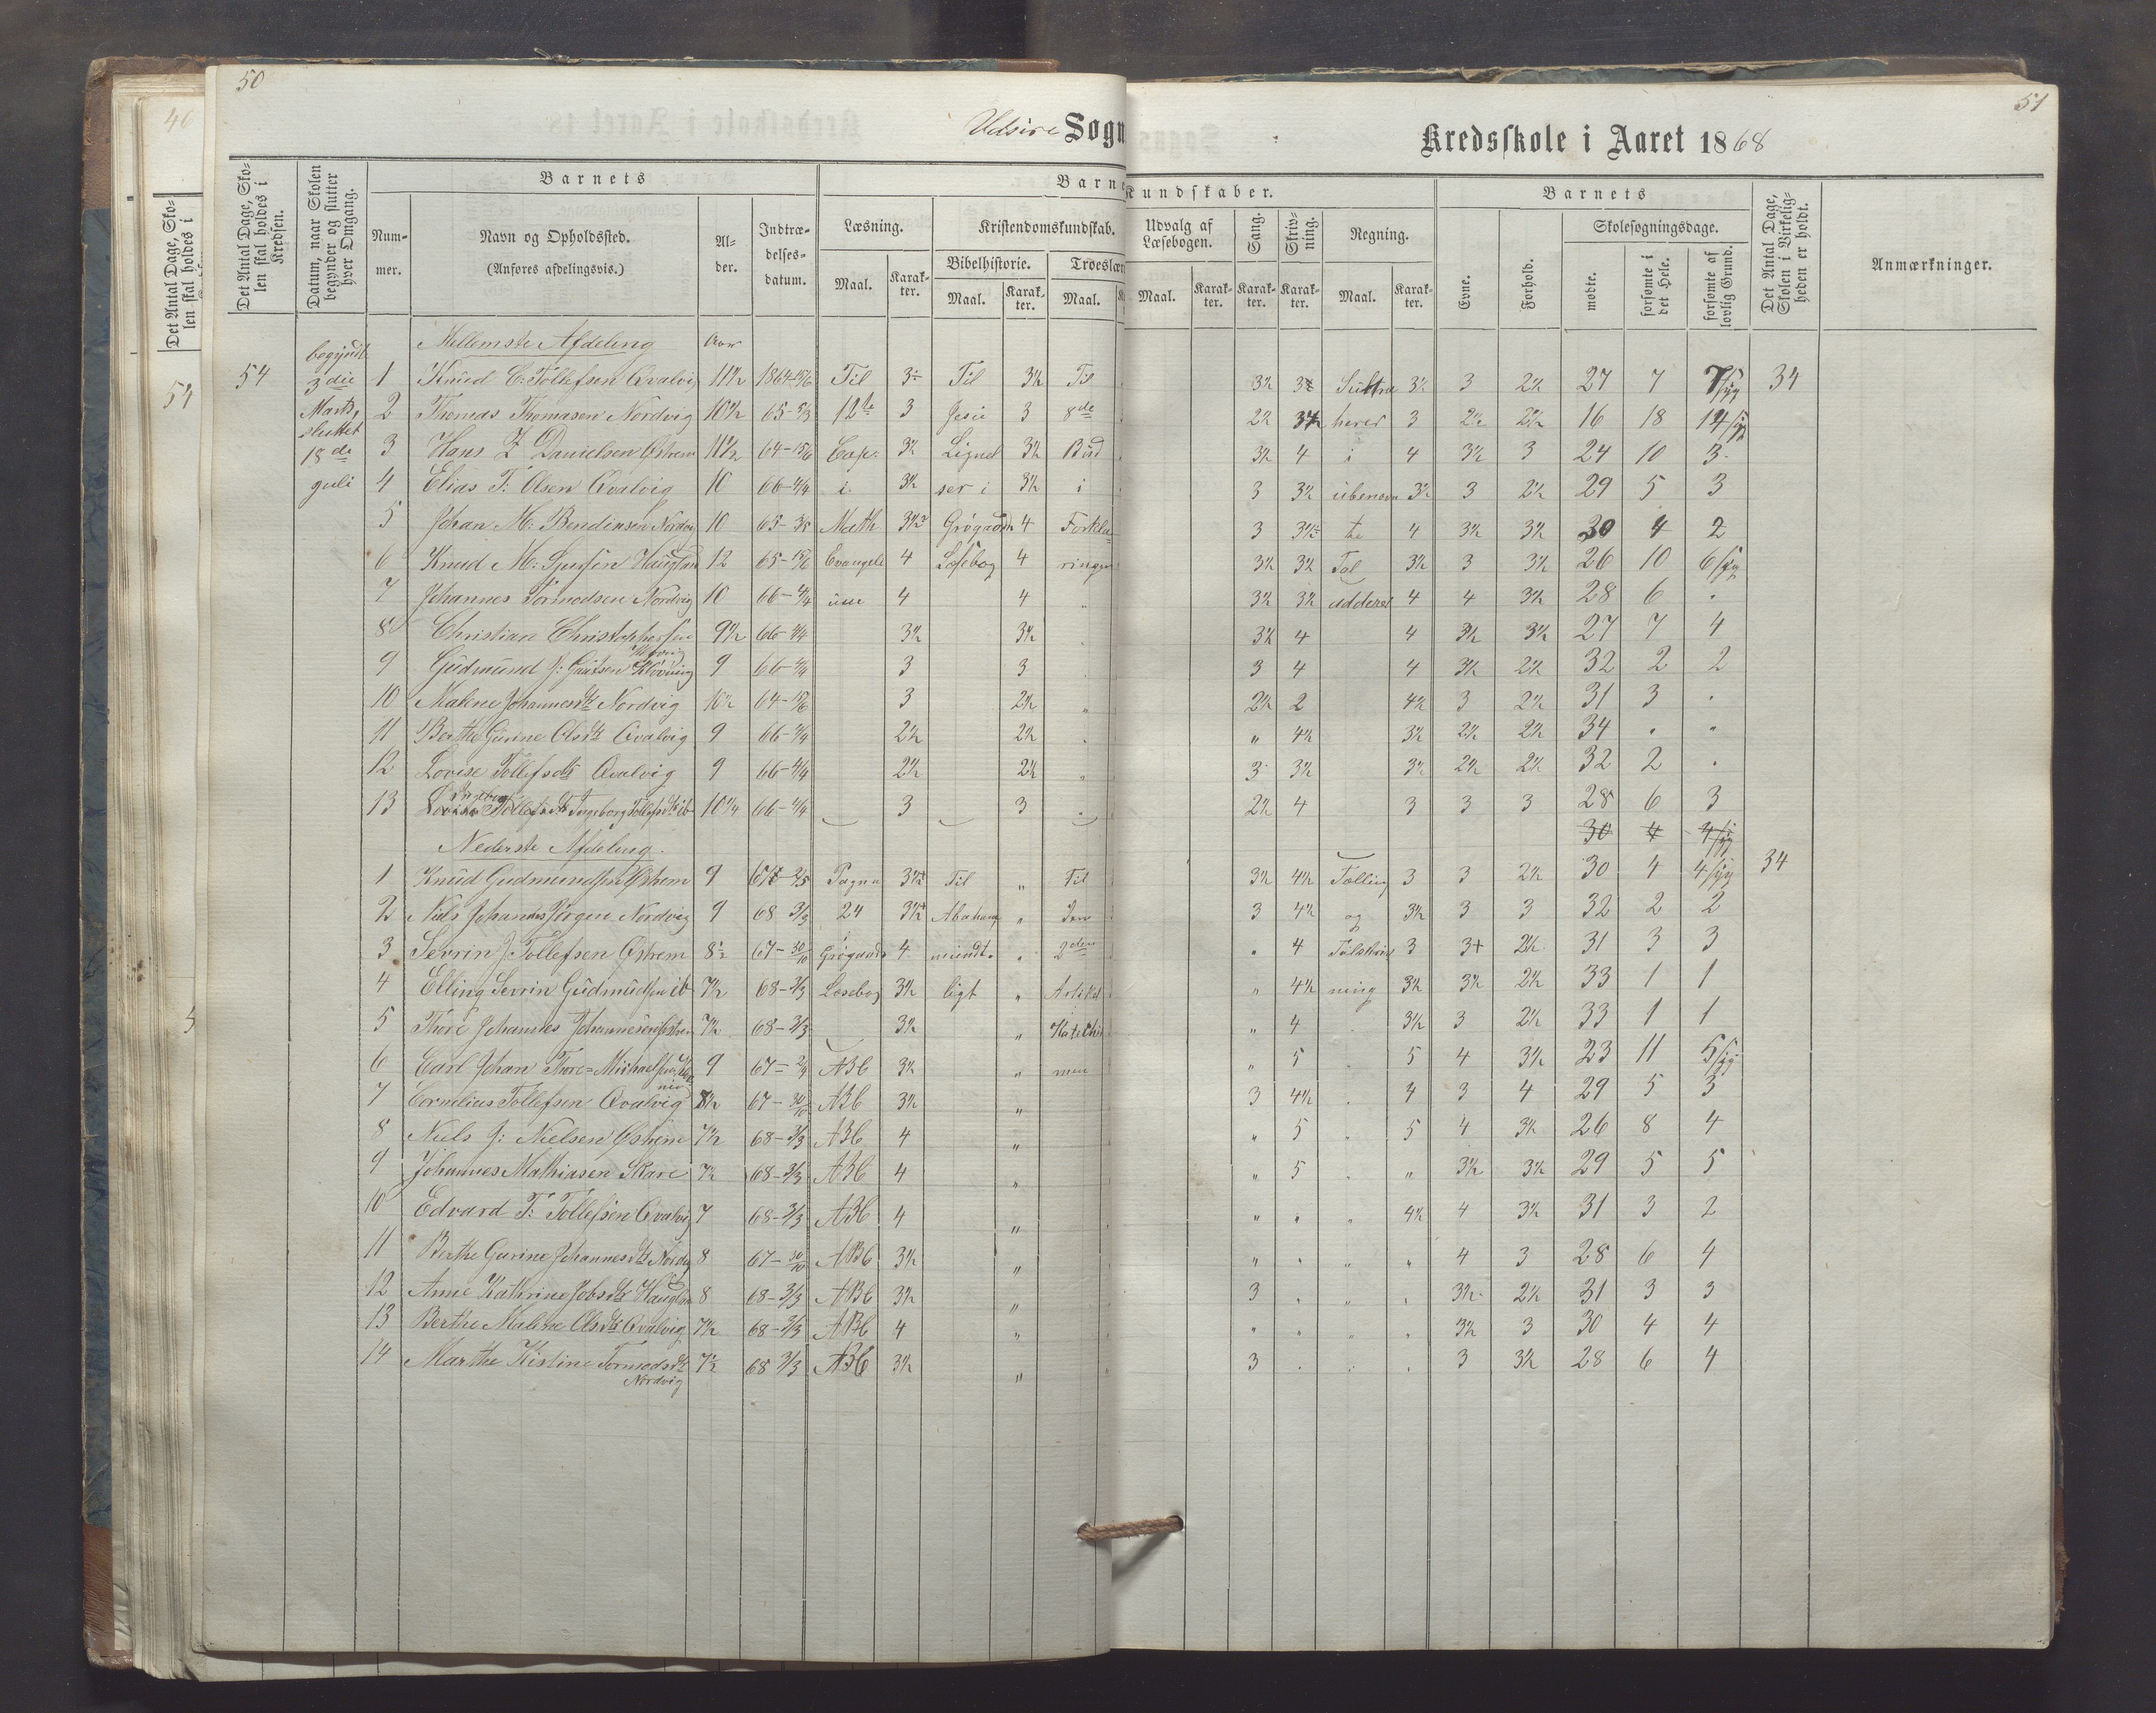 50
51
Udsire Sogn
Kredsskole i Aaret 1868
Det Antal Dage, Sko-
len skal holdes i
Kredsen.
Datum, naar Skolen
begynder og slutter
hver Omgang.
Barnets
Num-
mer.
Navn og Opholdssted.
(Anføres afdelingsvis.)
Al-
der.
Indtræ-
delses-
datum.
Læsning.
Maal.
Karak-
ter.
Kristendomskundskab.
Bibelhistorie.
Maal.
Karak-
ter.
Maal.
Kundskaber.
Udvalg af
Læsebogen.
Maal.
Karak-
ter.
Sang.
Karak-
ter.
Skriv-
ning.
Karak-
ter.
Regning.
Maal.
Karak-
ter.
Barnets
Evne.
Forhold.
Skolesøgningsdage.
mødte.
forsømte i
det Hele.
forsømte af
lovlig Grund.
Det Antal Dage,
Skolen i Virkelig-
heden er holdt.
Anmærkninger.
Mellemste Afdeling Aar
54 begyndte 3die Marts, sluttet 18de Juli
1 Knud C. Tollefsen Qvalvig 11½ 1864-15/6 Til 3½ Til 3½ Til 3½ Subtra 3½ 3 2½ 27 7 7 syg 34
2 Thomas Thomasen Nordvig 10½ 65-3/3 12te 3 Jesu 3 8de 2½ herer 3 2½ 2½ 16 18 14 syg
3 Hans Z Danielsen Østrem 11½ 64-15/6 Cap. 3½ Lignel 3½ Bud 3½ 4 i 4 3½ 3 24 10 3
4 Elias T: Olsen Qvalvig 10 66-4/4 i 3½ ser i 3½ i 3 3½ ubenævn 3½ 3 2½ 29 5 3
5 Johan M: Bendiksen Nordvig 10 65-3/5 Math Grøgaards 4 Forkla 3 te 4 3½ 3½ 30 4 2
6 Knud M: Haugland 12 65-15/6 Evangeli 4 Læsebog 4 ringen 3½ 3½ Tal 3½ 3 3½ 26 10 6 syg
7 Johannes Tormodsen Nordvig 10 66-4/4 um 4 4 3½ 3½ adderer 4 4 3½ 28 6
8 Christian Christophersen 9½ 66-4/4 3½ 3½ 3½ 4 4 3½ 3½ 27 7 4
9 Gudmund J: Gautsen Klovning 9 66-4/4 3 3 3 4 4 3½ 2½ 32 2 2
10 Malene Johannesdtr Nordvig 10½ 64-15/6 3 2½ 2½ 2 4½ 3 2½ 31 3
11 Berthe Gurine Olsdtr Qvalvig 9 66-4/4 2½ 2½ " 4½ 3½ 2½ 2½ 34
12 Lovise Tollefsdtr Qvalvig 9 66-4/4 2½ 2½ 3 3½ 3½ 2½ 2½ 32 2
13 Ingeborg Tollefsdtr ib 10¼ 66-4/4 3 3 2½ 4 3 3 3 28 6 3
30 4 4 syg
Nederste Afdeling.
1 Knud Gudmundsen Østrem 9 Pagna Til " Til 3½ 4½ Tælling 3 3 2½ 30 4 4 syg 34
2 Niels Johannes Jørgen Nordvig 9 68 3/3 24 Abraham " den 3 4½ og 3½ 3 3 32 2 2
3 Sevrin J Tollefsen Østrem 8½ 67-30/10 Grøgaards 4 mundt- 2den 4 Talskriv 3 3+ 2½ 31 3 3
4 Elling Sevrin Gudmundsen ib 7½ 68-3/3 Læsebog 3½ ligt " Artikel " 4½ ning 3½ 3½ 2½ 33 1 1
5 Thore Johannes Johannesen Østrem 7½ 68-3/3 3½ " Katechis " 4 3½ 3 2½ 33 1 1
6 Carl Johan Thore Michaelsen 9 67-2/4 ABC 3½ " men " 5 5 4 3½ 23 11 5 syg
7 Cornelius Tollefsen Qvalvig 8½ 67-30/10 ABC 3½ " 3 4½ 4 3 4 29 5 3
8 Niels J: Nielsen Østrem 7½ 68-3/3 ABC 4 " " 5 5 4 3½ 26 8 4
9 Johannes Mathiasen Skare 7½ 68-3/3 ABC 4 " " 5 " 3½ 3½ 29 5 5
10 Edvard T: Tollefsen Qvalvig 7 68-3/3 ABC 4 " " " 4½ 4 3½ 31 3 2
11 Berthe Gurine Johannesdtr Nordvig 8 67-30/10 ABC 3½ " " " " 4 3 28 6 4
12 Anne Kathrine Jobsdtr Haugland 8 68-3/3 ABC 3½ " 3 " 3½ 2½ 31 3 3
13 Berthe Malene Olsdtr Qvalvig 7½ 68-3/3 ABC 4 " " " " 3½ 3 30 4 4
14 Marthe Kistine Tormodsdtr Nordvig 7½ 68 3/3 ABC 3½ " 3 3 3½ 28 6 4